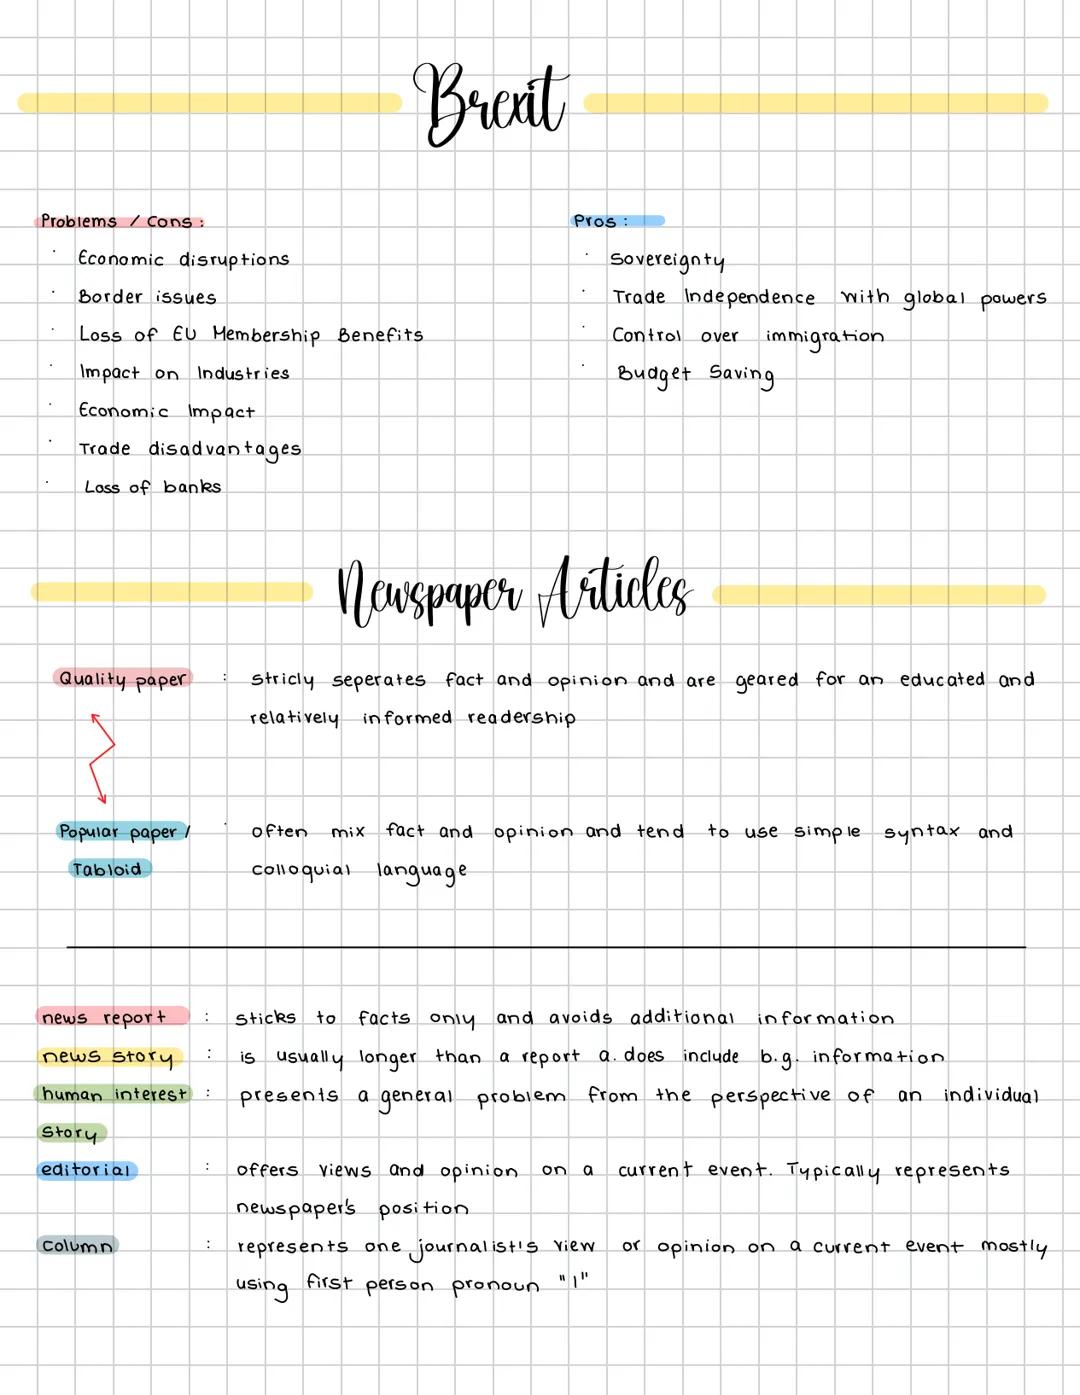 Brexit
Problems / Cons:
· Economic disruptions
· Border issues
· Loss of EU Membership Benefits
· Impact on Industries
· Economic Impact
· Trade disadvantages
· Loss of banks
Pros:
· Sovereignty
· Trade Independence with global powers
· Control over immigration
· Budget Saving
Newspaper Articles
Quality paper : stricly seperates fact and opinion and are geared for an educated and
relatively informed readership
Popular paper / : often mix fact and opinion and tend to use simple syntax and
Tabloid colloquial language
news report : sticks to facts only and avoids additional information
news story : is usually longer than a report a. does include b.g. information
human interest : presents a general problem from the perspective of an individual
story
editorial : offers views and opinion on a current event. Typically represents
newspaper's position
column : represents one journalist's view or opinion on a current event mostly
using first person pronoun "I"